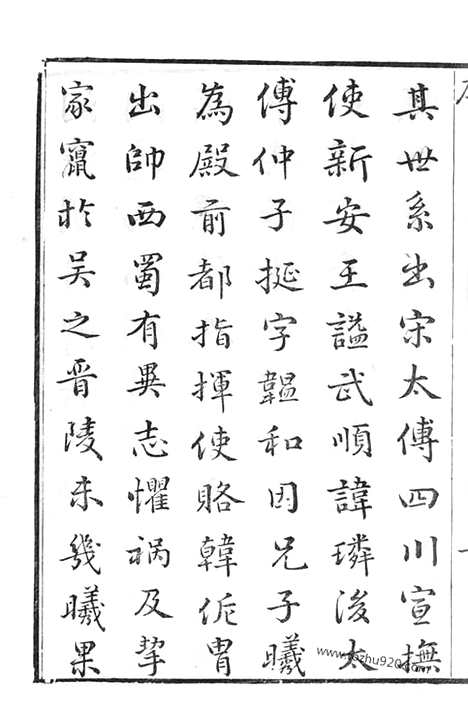 其世系出宋太傅四川宣撫
使新安王謚武順諱璘後太
傅仲子挺字韞和因兄子曦
為殿前都指揮使賂韓侂胄
出帥西蜀有異志懼禍及挈
家竄於吳之晋陵未幾曦果